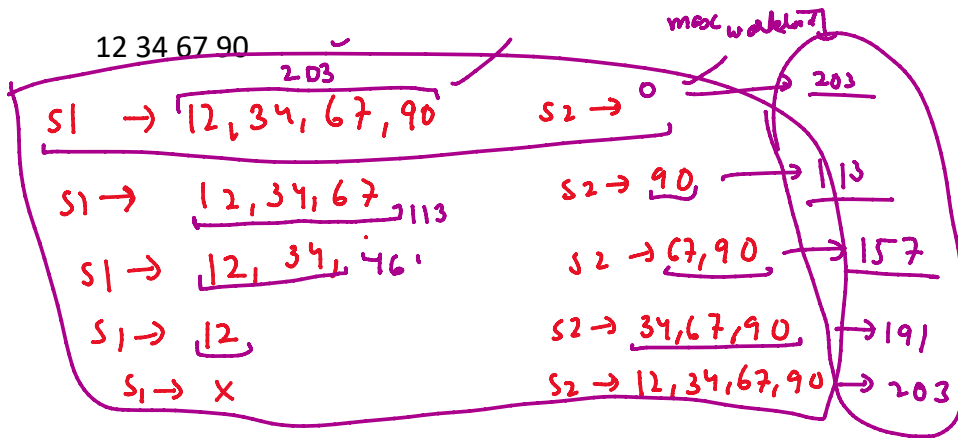 max workload
12 34 67 90
203
S1 → 12, 34, 67, 90 S2 → 0 → 203
S1 → 12, 34, 67 113 S2 → 90 → 113
S1 → 12, 34, 46 S2 → 67, 90 → 157
S1 → 12 S2 → 34, 67, 90 → 191
S1 → X S2 → 12, 34, 67, 90 → 203